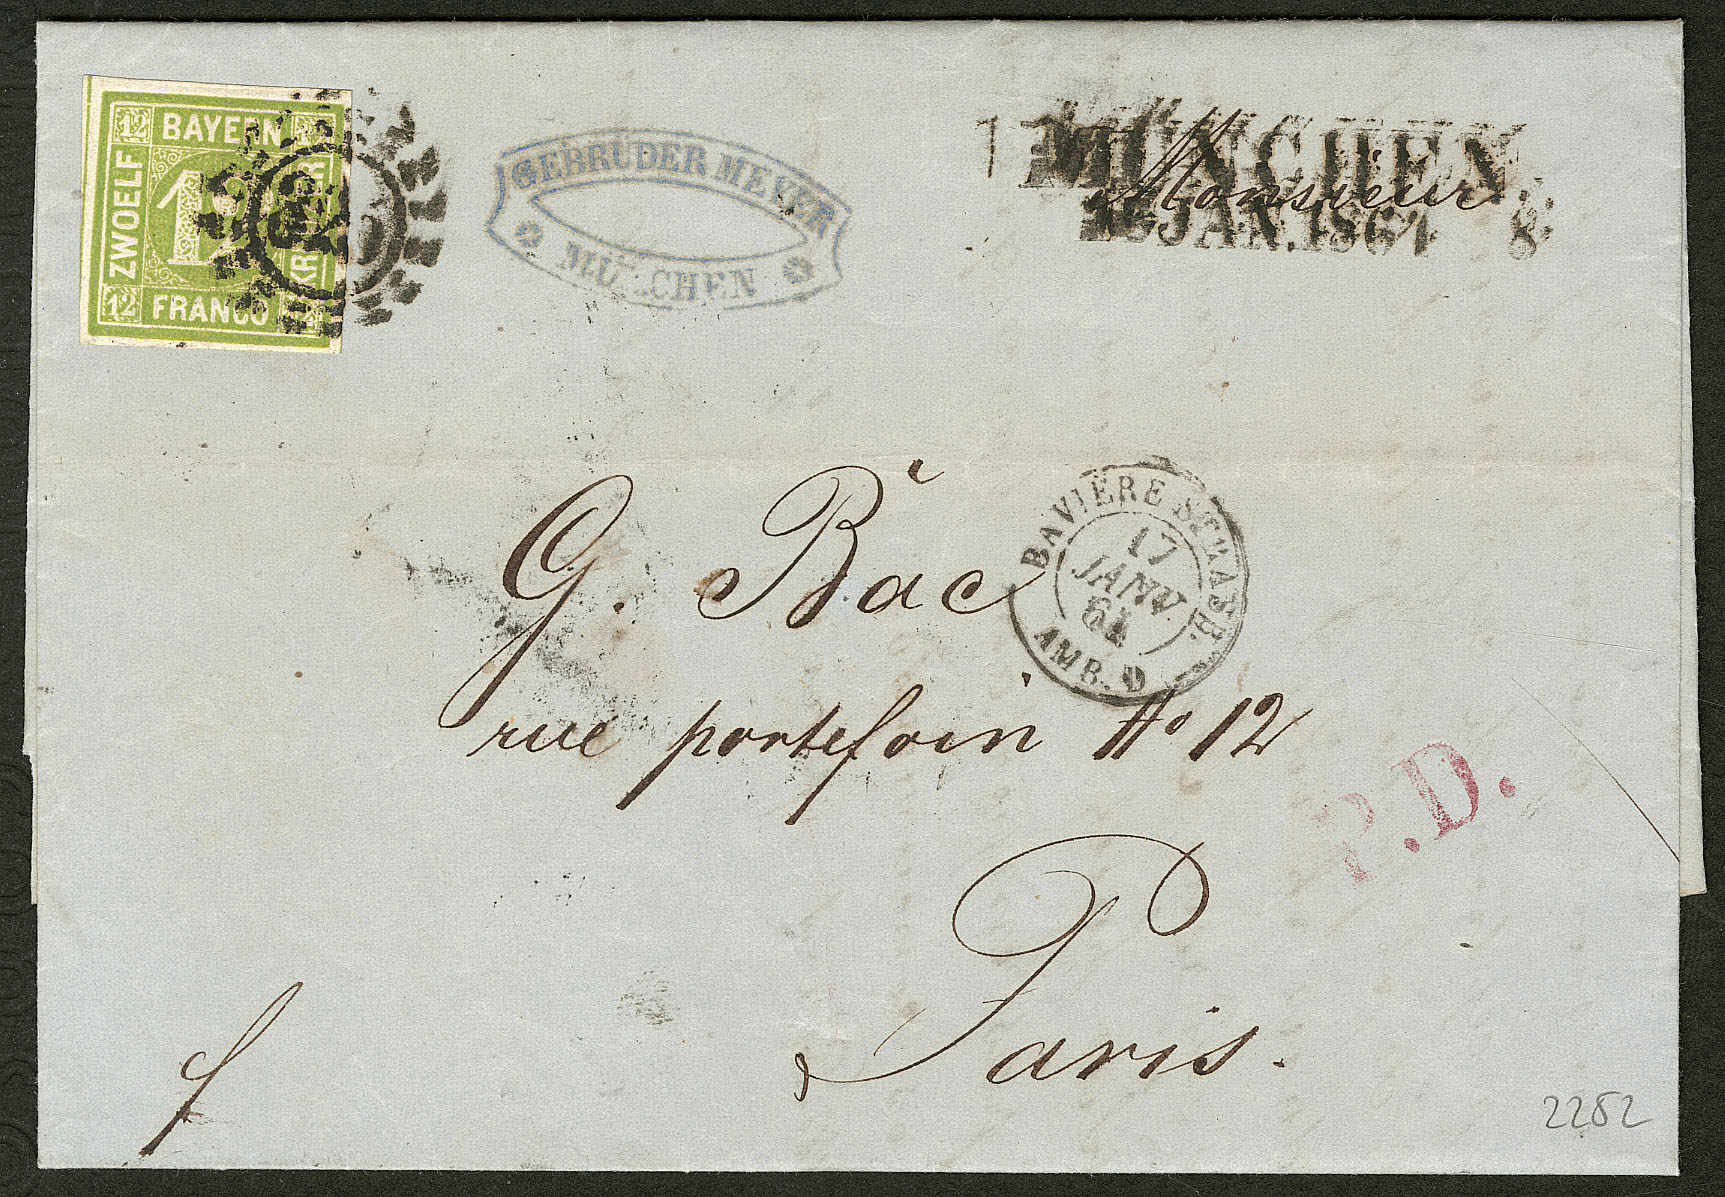 12 BAYERN
ZWOELF
12
KR
12 FRANCO
GEBRÜDER MEYER
MÜNCHEN
MÜNCHEN
JAN. 1861 8
Monsieur
G. Bac
BAVIÈRE STRASB.
17
JANV.
61
AMB. D
rue portefoin No 12
P.D.
Paris.
f
2252